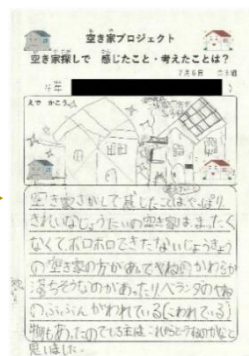 空き家プロジェクト
空き家探しで 感じたこと・考えたことは？
7月6日
えで かこう。
空き家さがしで感じたことは、やっぱり
きれいなじょうたいの空き家は、まったく
なくてボロボロできたないじょうきょう
の空き家の方があってやねのかわらが
落ちそうなのがあったりベランダのやね
のぶぶんがわれている(こわれている)
物もあったのでしょう主はこれをどうするのかなと
思いました。